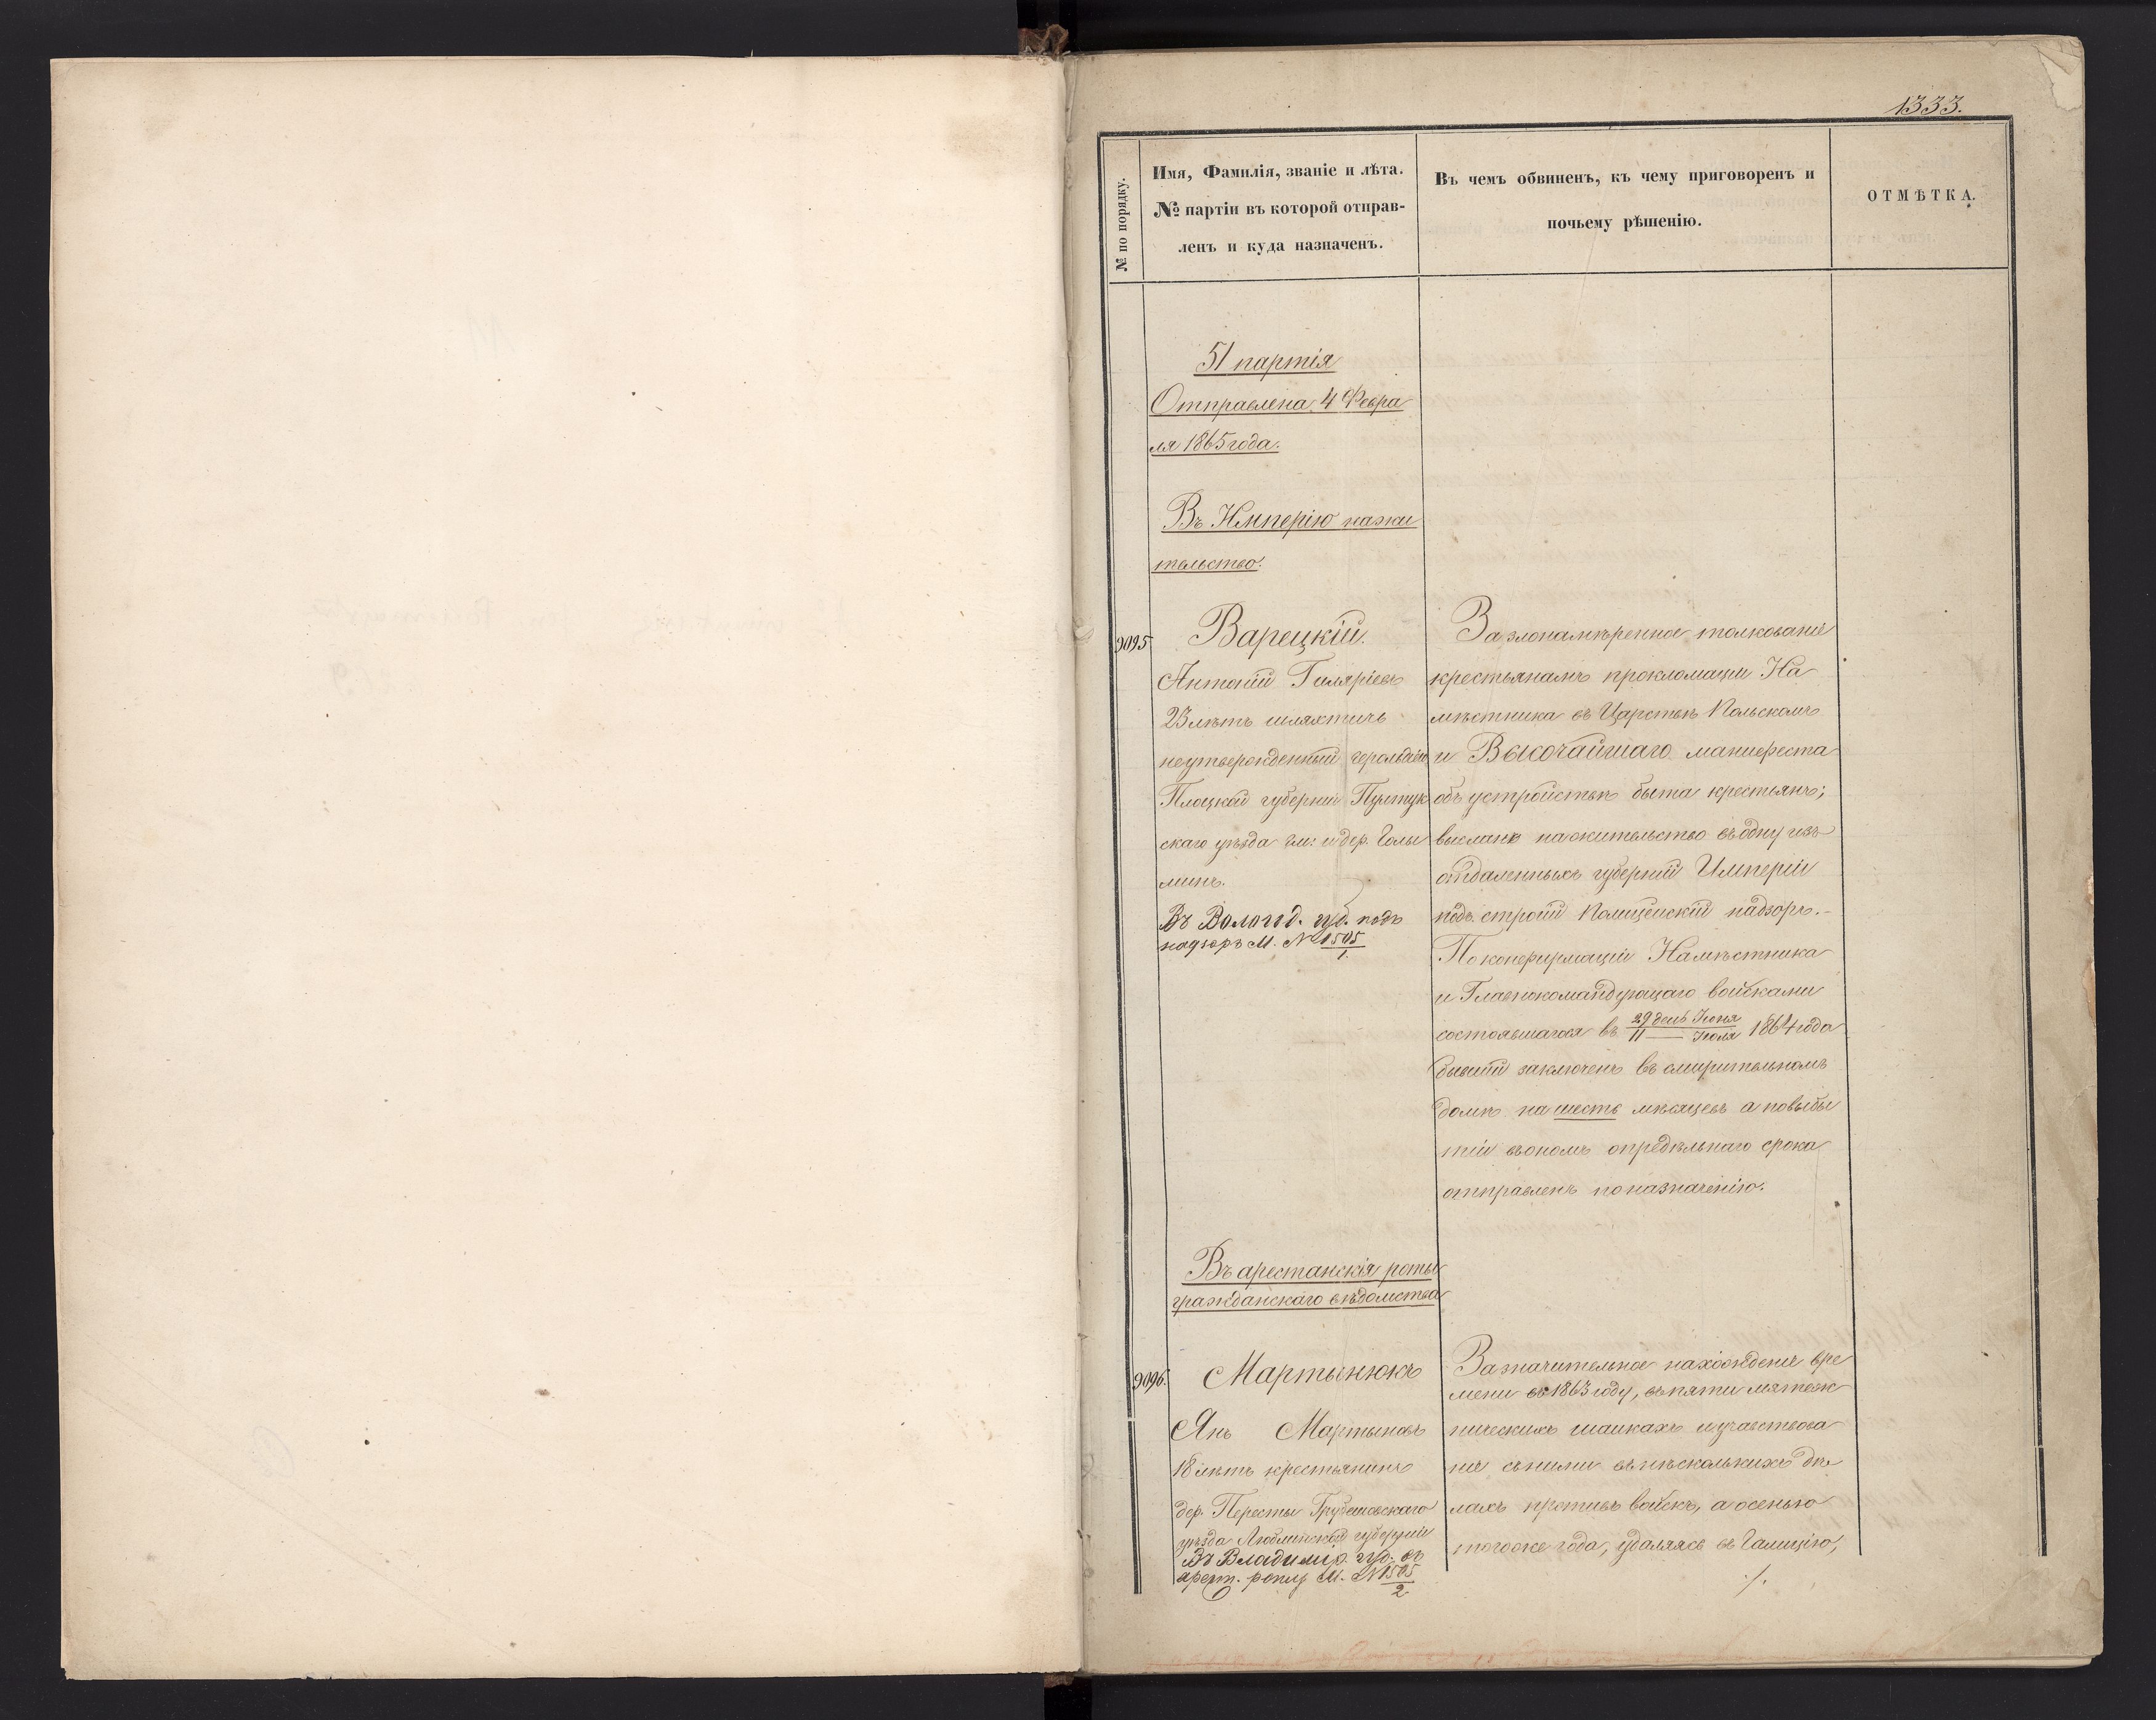 1333.
№ по порядку.
Имя, Фамилія, званіе и лѣта.
№ партіи въ которой отправ-
ленъ и куда назначенъ.
Въ чемъ обвиненъ, къ чему приговоренъ и
почьему рѣшенію.
ОТМѢТКА.
51 партія
Отправлена 4 Февра
ля 1865 года.
Въ Имперію на жи
тельство.
9095
Варецкій.
Антоній Гиляріевъ
23 лѣтъ шляхтичъ
неутвержденный герольдіею
Плоцкой губерніи Пултук
скаго уѣзда гм: и дер. Голы
минъ.
Въ Вологод. губ. подъ
надзоръ М. № 1505/1.
За злонамѣренное толкованіе
крестьянамъ прокломаціи На
мѣстника въ Царствѣ Польскомъ
и Высочайшаго манифеста
объ устройствѣ быта крестьянъ;
высланъ на жительство въ одну изъ
отдаленныхъ губерній Имперіи
подъ строгій Полицейскій надзоръ.-
По конфирмаціи Намѣстника
и Главнокомандующаго войсками
состоявшагося въ 29 день Іюня / 11 — Іюля 1864 года
бывшій заключенъ въ смирительномъ
домѣ на шесть мѣсяцевъ а по выбы
тіи въ ономъ опредѣльнаго срока
отправленъ по назначенію.
Въ арестанскія роты
гражданскаго вѣдомства
9096.
Мартынюкъ
Янъ Мартыновъ
18 лѣтъ крестьянинъ
дер. Пересты Грубешовскаго
уѣзда Люблинской губерніи
Въ Владимір. губ. въ
арест. роты М. № 1505/2
За значительное нахожденіе вре
мени въ 1863 году, въ пяти мятеж
ническихъ шайкахъ и участвова
ніе съ ними въ нѣсколькихъ дѣ
лахъ противъ войскъ, а осенью
того же года, удалясь въ Галицію,
./.